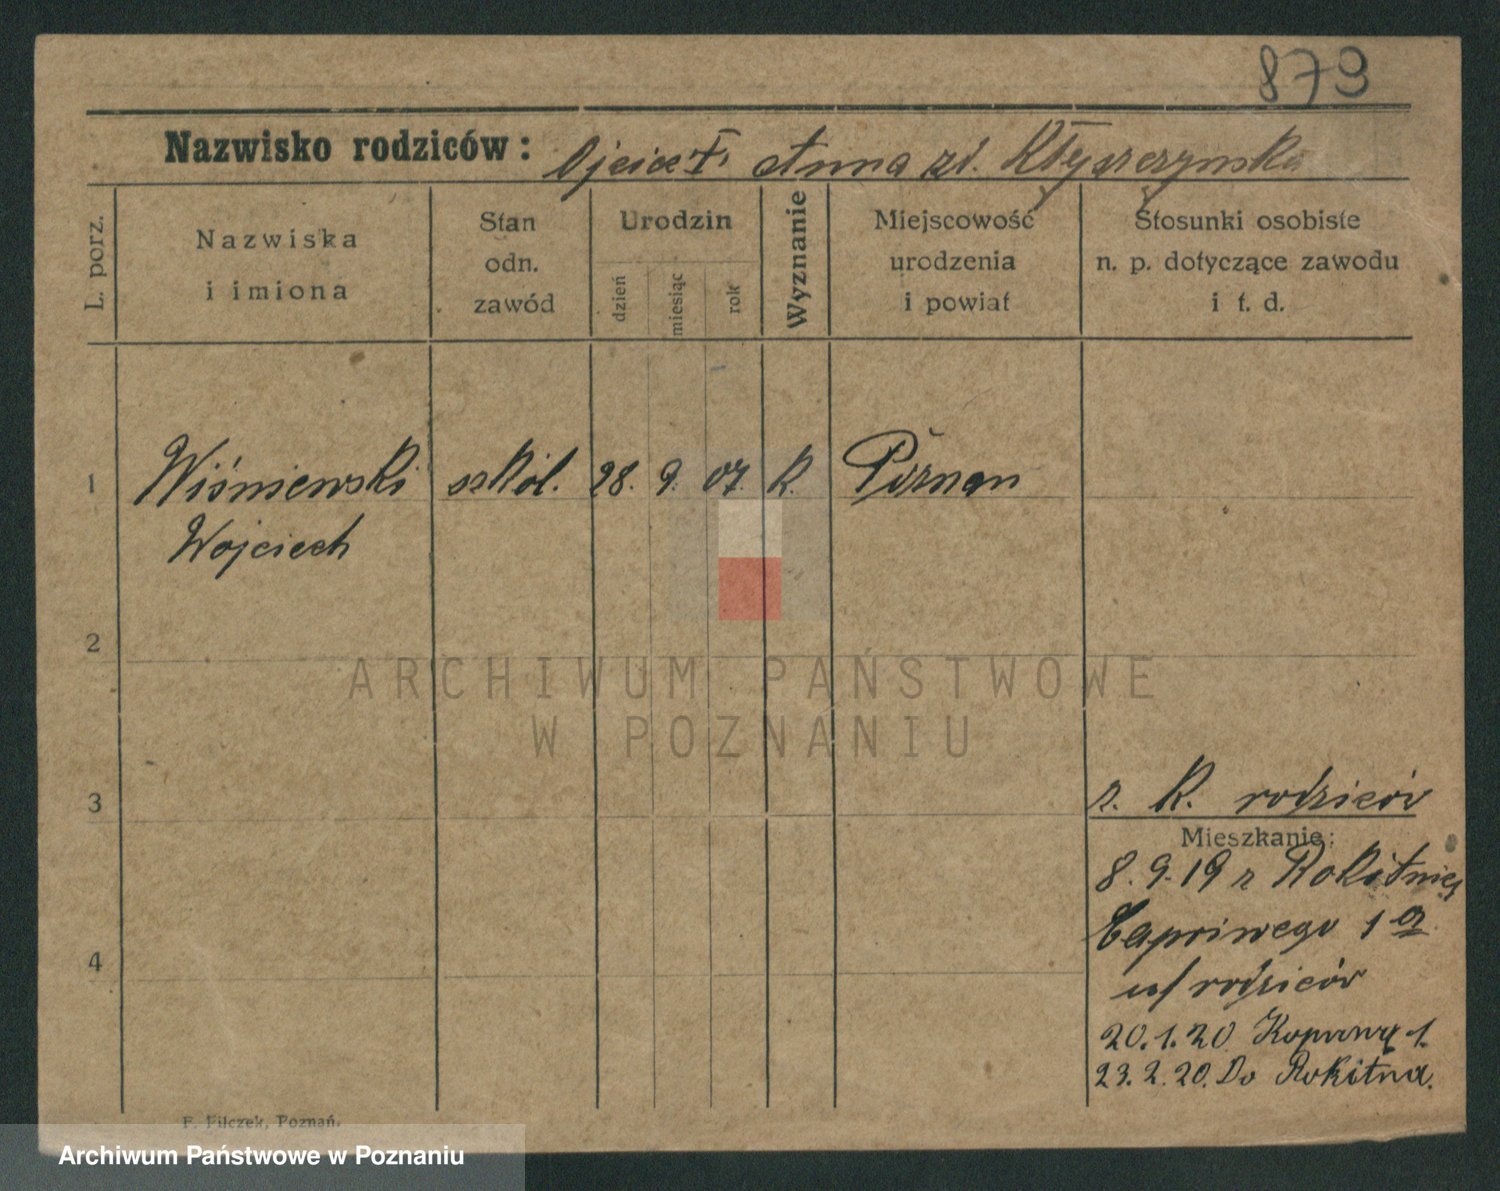 879
Nazwisko rodziców: Ojciec †, Anna zd.
L. porz.
Nazwiska
i imiona
Stan
odn.
zawód
Urodzin
dzień
miesiąc
rok
Wyznanie
Miejscowość
urodzenia
i powiat
Stosunki osobiste
n. p. dotyczące zawodu
i t. d.
1 Wiśniewski szkol. 28. 9. 07. K. Poznan
Wojciech
2
ARCHIWUM PAŃSTWOWE
W POZNANIU
3
z. K. rodziców
Mieszkanie:
8.9.19 z Rokitnicy
Capriwego 1 a
u/ rodziców
4
20.1.20 1.
23.2.20. Do Rokitna.
F. Pilczek, Poznań.
Archiwum Państwowe w Poznaniu